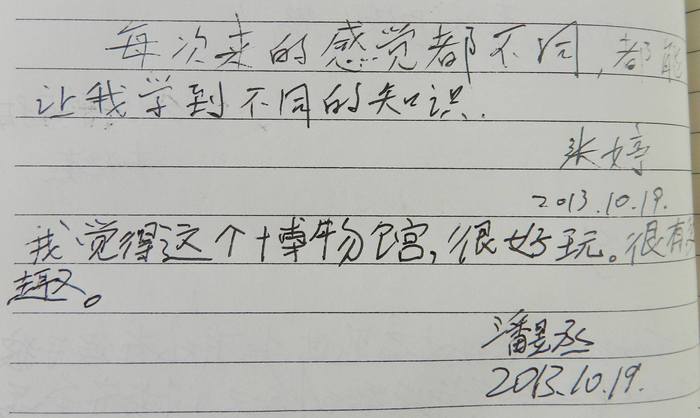 每次来的感觉都不同，都能
让我学到不同的知识.
张婷
2013.10.19.
我觉得这个博物馆，很好玩。很有
趣。
潘昱丞
2013.10.19.